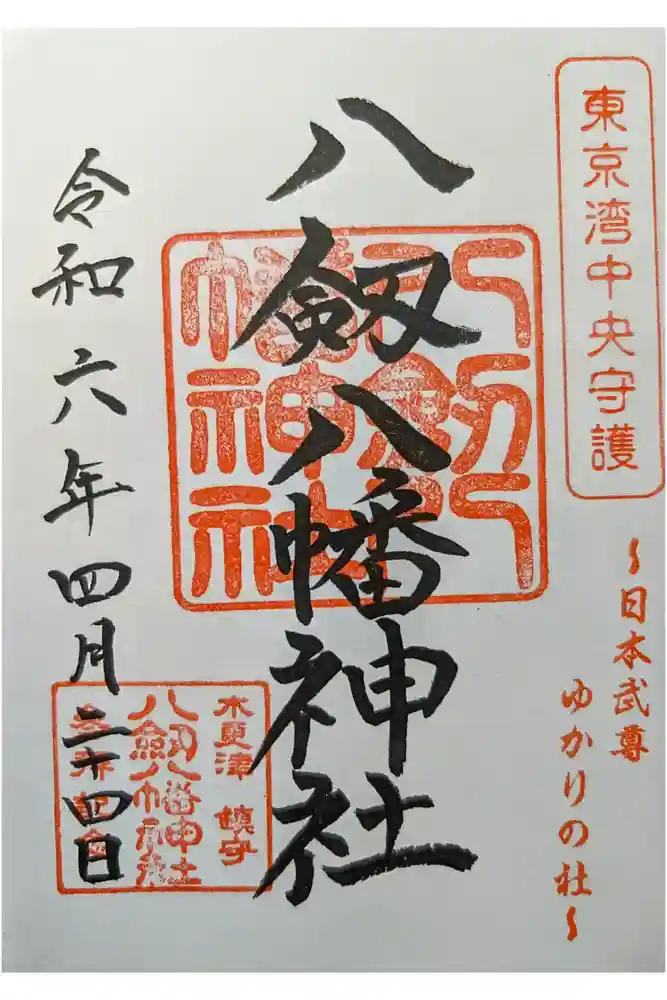 東京湾中央守護
～日本武尊
ゆかりの社～
八劔八幡神社
八劔八幡神社
木更津 鎮守
八劔八幡神社
令和六年四月二十四日